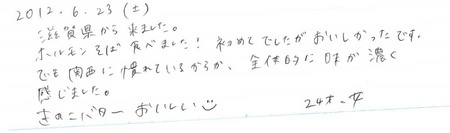 2012.6.23(土)
滋賀県から来ました。
ホルモンそば食べました!初めてでしたがおいしかったです。
でも関西に慣れているからか、全体的に味が濃く
感じました。
きのこバターおいしい
24才.